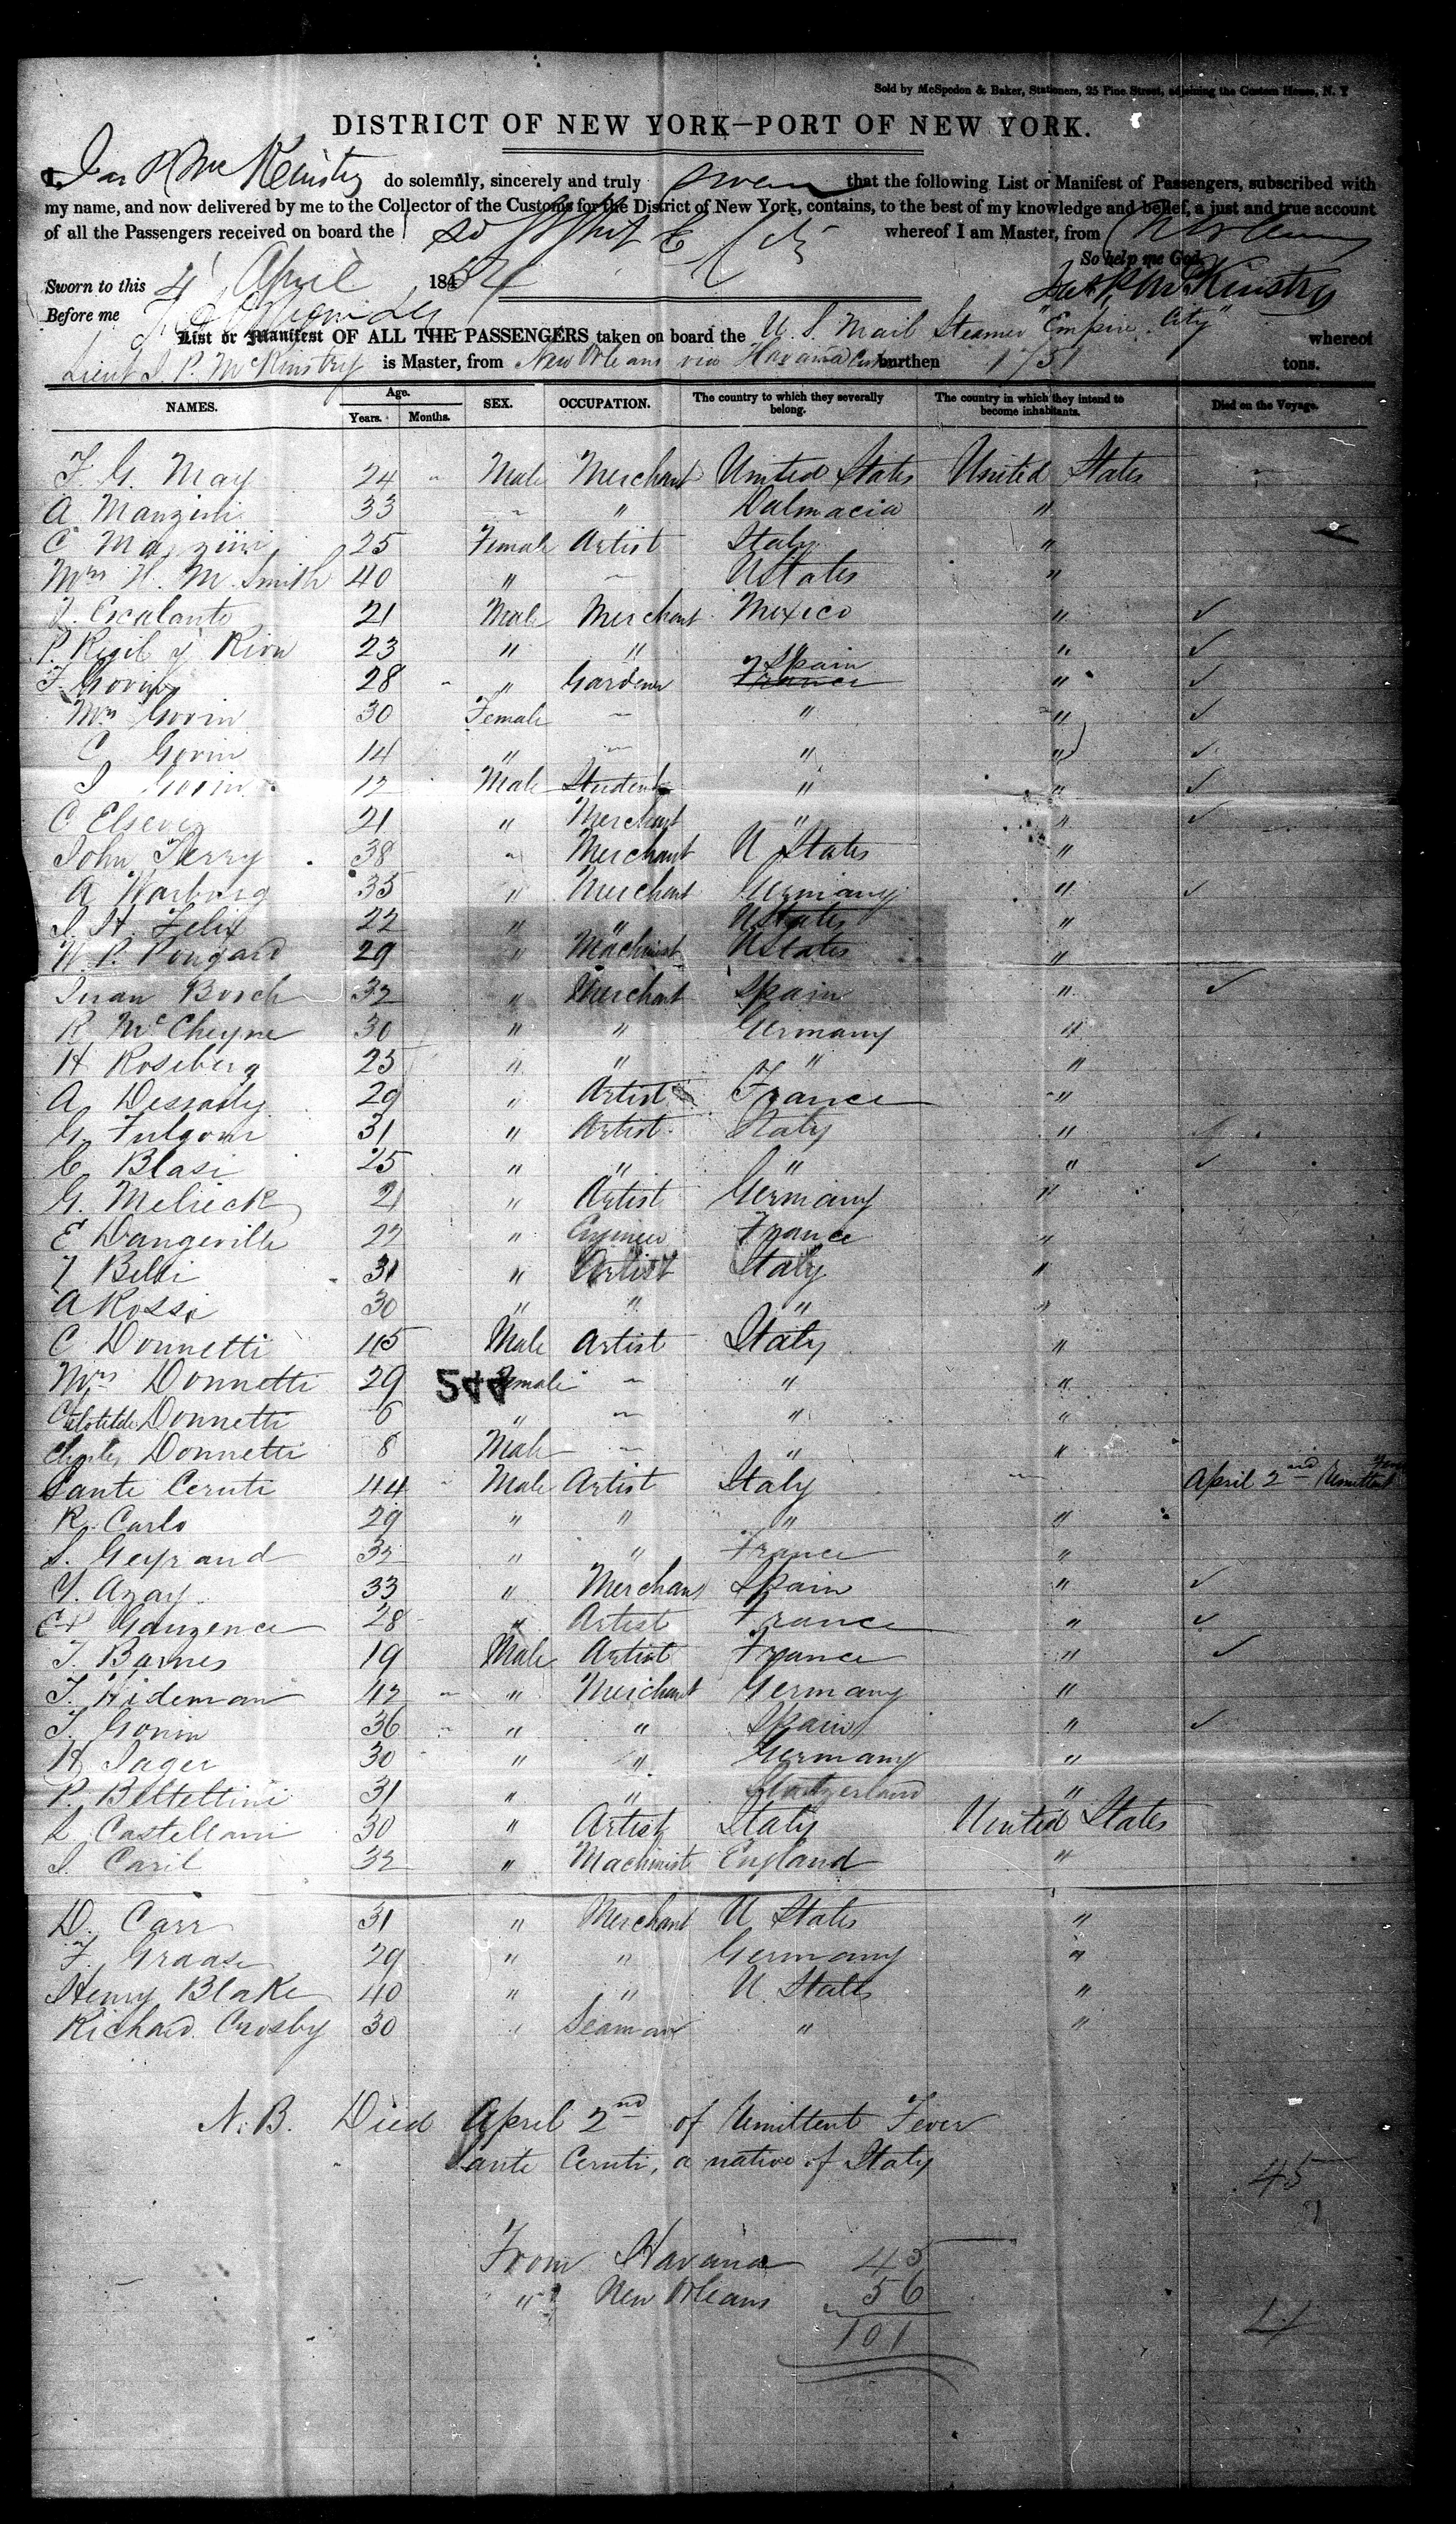 Sold by McSpedon & Baker, Stationers, 25 Pine Street, adjoining the Custom House, N. Y
DISTRICT OF NEW YORK—PORT OF NEW YORK.
I, Jas P Mc Kinstry do solemnly, sincerely and truly swear that the following List or Manifest of Passengers, subscribed with
my name, and now delivered by me to the Collector of the Customs for the District of New York, contains, to the best of my knowledge and belief, a just and true account
of all the Passengers received on board the City whereof I am Master, from N Orleans
So help me God.
Sworn to this 4 April 1854 Jas P McKinstry
Before me
List or Manifest OF ALL THE PASSENGERS taken on board the U. S. Mail Steamer "Empire City" whereof
Lieut J. P. McKinstry is Master, from New Orleans via Havana burthen 1751 tons.
NAMES. Age. Years. Months. SEX. OCCUPATION. The country to which they severally belong. The country in which they intend to become inhabitants. Died on the Voyage.
F. G. May 24 " Male Merchant United States United States
A Manzini 33 " " Dalmacia "
C Manzini 25 Female Artist Italy "
Mrs H. M. Smith 40 " — UStates "
J. Escalante 21 Male Merchant Mexico " ✓
P. Regil y Rion 23 " " " " ✓
F Govin 28 " " Gardener France Spain " ✓
Mrs Govin 30 Female — " " ✓
C Govin 14 " — " " ✓
J Govin 12 Male Student " " ✓
C. Elsever 21 " Merchant " " ✓
John Terry 38 " Merchant U States "
A Warburg 35 " Merchant Germany " ✓
J. H. Felix 22 " " UStates "
W. P. Pongard 29 " Machinist UStates "
Juan Bosch 32 " Merchant Spain " ✓
R McCheyne 30 " " Germany "
H Roseberg 25 " " " "
A Dessaily 29 " Artist France "
G. Fulgoni 31 " Artist Italy " ✓
C. Blasi 25 " " " " ✓
G. Melieck 21 " Artist Germany "
E Dangeville 22 " Engineer France "
T Belli 31 " Artist Italy "
A Rossi 30 " " " "
C Donnetti 45 Male Artist Italy "
Mrs Donnetti 29 Female — " "
544
Clotilde Donnetti 6 " — " "
Charles Donnetti 8 Male — " "
Sante Ceruti 44 " Male Artist Italy — April 2nd Remittent Fever
R. Carlo 29 " " " "
S. Geyrand 32 " " France "
Y. Azay 33 " Merchant Spain " ✓
Gauzence 28 " Artist France " ✓
T. Barnes 19 Male Artist France " ✓
T. Wideman 42 " " Merchant Germany "
J. Gonin 36 " " " Spain " ✓
H Jager 30 " " " Germany "
P. Bettettini 31 " " Switzerland "
L Castellani 30 " Artist Italy United States
J. Caril 32 " Machinist England "
D. Carr 31 " Merchant U States "
F. Graase 29 " " Germany "
Henry Blake 40 " " U. States "
Richard Crosby 30 " Seaman " "
N. B. Died April 2nd of Remittent Fever
Sante Ceruti, a native of Italy
45
From Havana 45
" New Orleans 56
101